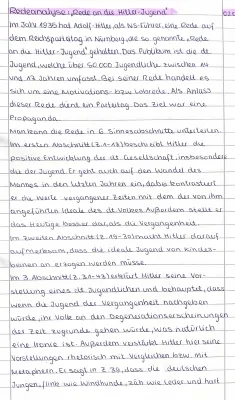 Redeanalyse: "Rede an die Hitler-Jugend"
Im Jahr 1935 hat Adolf Hitler, als NS-Führer, eine Rede auf
dem Reichsparteitag in Nürnberg, die so genannte "Rede
an die Hitler-Jugend" gehalten. Das Publikum ist die dt.
Jugend, welche über 50 000 Jugendliche zwischen
und 17 Jahren umfasst. Bei seiner Rede handelt es
sich um eine Motivations- bzw. Lobrede. Als Anlass
dieser Rede dient ein Parteitag. Das Ziel war eine
Propaganda.
Man kann die Rede in 6 Sinnesabschnitte unterteilen.
Im ersten Abschnitt (Z.1-13) beschreibt Hitler die
positive Entwicklung der dt. Gesellschaft, insbesondere
die der Jugend. Er geht auch auf den Wandel des
Mannes in den letzten Jahren ein, dabei kontrastiert
er die Werte vergangener Zeiten mit dem der von ihm
angeführten Ideale des dt. Volkes. Außerdem stellt er
das Heutige besser dar, als die Vergangenheit.
Im zweiten Abschnitt macht Hitler darauf
aufmerksam, dass die ideale Jugend von Kindes-
beinen an erzogen werden müsse.
Im 3. Abschnitt erklärt Hitler seine Vor-
stellung eines dt. Jugendlichen und behauptet, dass
wenn die Jugend der Vergangenheit nachgeben
würde, ihr Volke an den Degenerationserscheinungen
der Zeit zugrunde gehen würde, was natürlich
eine Ironie ist. Außerdem verstärkt Hitler hier seine
Vorstellungen rhetorisch mit Vergleichen bzw. mit
Metaphern. Er sagt in Z. 39, dass die deutschen
Jungen, flink wie Windhunde, zäh wie Leder und hart